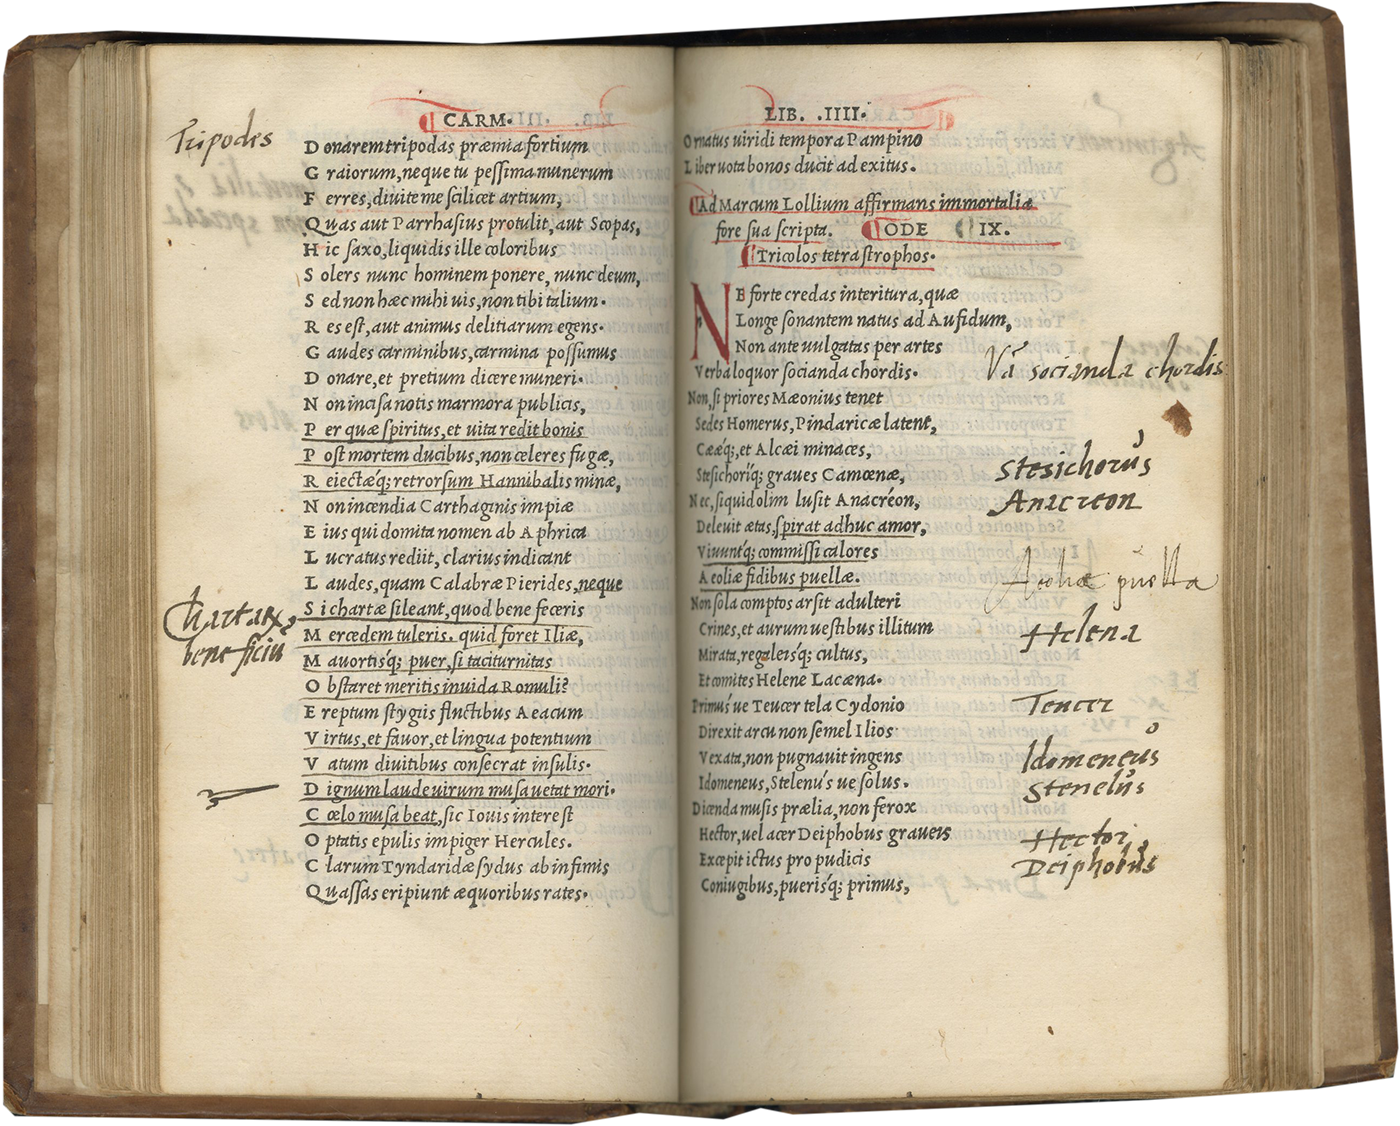 CARM.
Tripodes
Donarem tripodas præmia fortium
Graiorum, neque tu pessima munerum
Ferres, diuite me scilicet artium,
Quas aut Parrhasius protulit, aut Scopas,
Hic saxo, liquidis ille coloribus
Solers nunc hominem ponere, nunc deum,
Sed non hæc mihi uis, non tibi talium.
Res est, aut animus delitiarum egens.
Gaudes carminibus, carmina possumus
Donare, et pretium dicere muneri.
Non incisa notis marmora publicis,
Per quæ spiritus, et uita redit bonis
Post mortem ducibus, non celeres fugæ,
Reiectæq; retrorsum Hannibalis minæ,
Non incendia Carthaginis impiæ
Eius qui domita nomen ab Aphrica
Lucratus rediit, clarius indicant
Laudes, quam Calabræ Pierides, neque
Si chartæ sileant, quod bene feceris
Chartarȝ
Mercedem tuleris. quid foret Iliæ,
beneficiu
Mauortisq; puer, si taciturnitas
Obstaret meritis inuida Romuli?
Ereptum stygiis fluctibus Aeacum
Virtus, et fauor, et lingua potentium
Vatum diuitibus consecrat insulis.
Dignum laude uirum musa uetat mori.
Cœlo musa beat, sic Iouis interest
Optatis epulis impiger Hercules.
Clarum Tyndaridæ sydus ab infimis
Quassas eripiunt æquoribus rates.
LIB. .IIII.
Ornatus uiridi tempora Pampino
Liber uota bonos ducit ad exitus.
Ad Marcum Lollium affirmans immortalia
fore sua scripta. ODE IX.
Tricolos tetrastrophos.
NE forte credas interitura, quæ
Longe sonantem natus ad Aufidum,
Non ante uulgatas per artes
Verba loquor socianda chordis.
Vȧ socianda chordis
Non, si priores Mæonius tenet
Sedes Homerus, Pindaricæ latent,
Cææq;, et Alcæi minaces,
Stesichoriq́; graues Camœnæ,
Stesichorus
Nec, siquid olim lusit Anacréon,
Anacreon
Deleuit ætas, spirat adhuc amor,
Viuuntq́; commissi calores
Aeoliæ fidibus puellæ.
Aeoliæ puella
Non sola comptos arsit adulteri
Crines, et aurum uestibus illitum
Helena
Mirata, regaleisq́; cultus,
Et comites Helene Lacæna.
Primuś ue Teucer tela Cydonio
Teucer
Direxit arcu non semel Ilios
Vexata, non pugnauit ingens
Idomeneus
Idomeneus, Stelenuś ue solus.
Stenelus
Dicenda musis prælia, non ferox
Hector, uel acer Deiphobus graueis
Hector
Excepit ictus pro pudicis
Deiphobus
Coniugibus, puerisq́; primus,